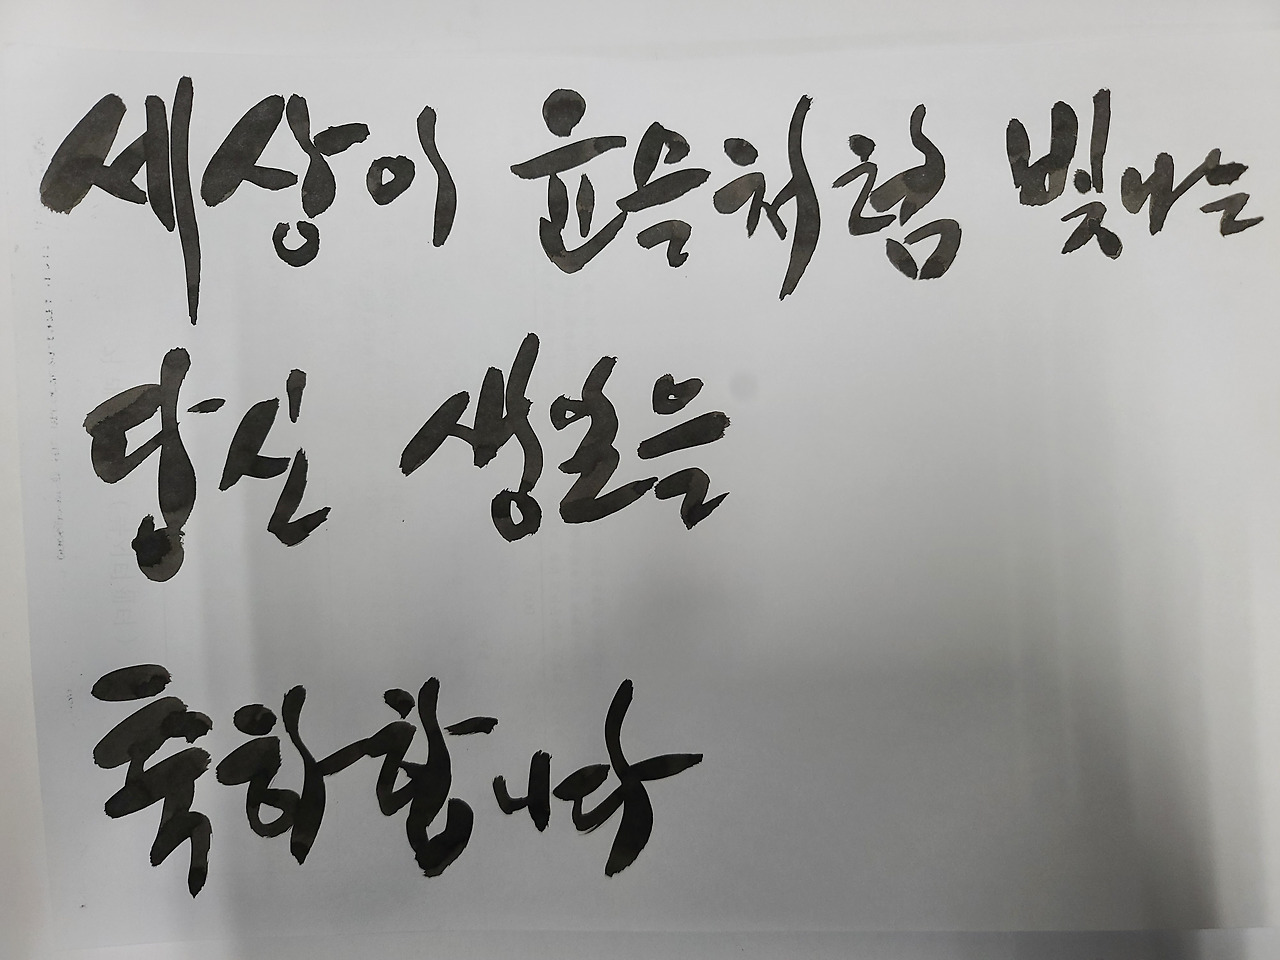 세상이 윤슬처럼 빛나는
당신 생일을
축하합니다